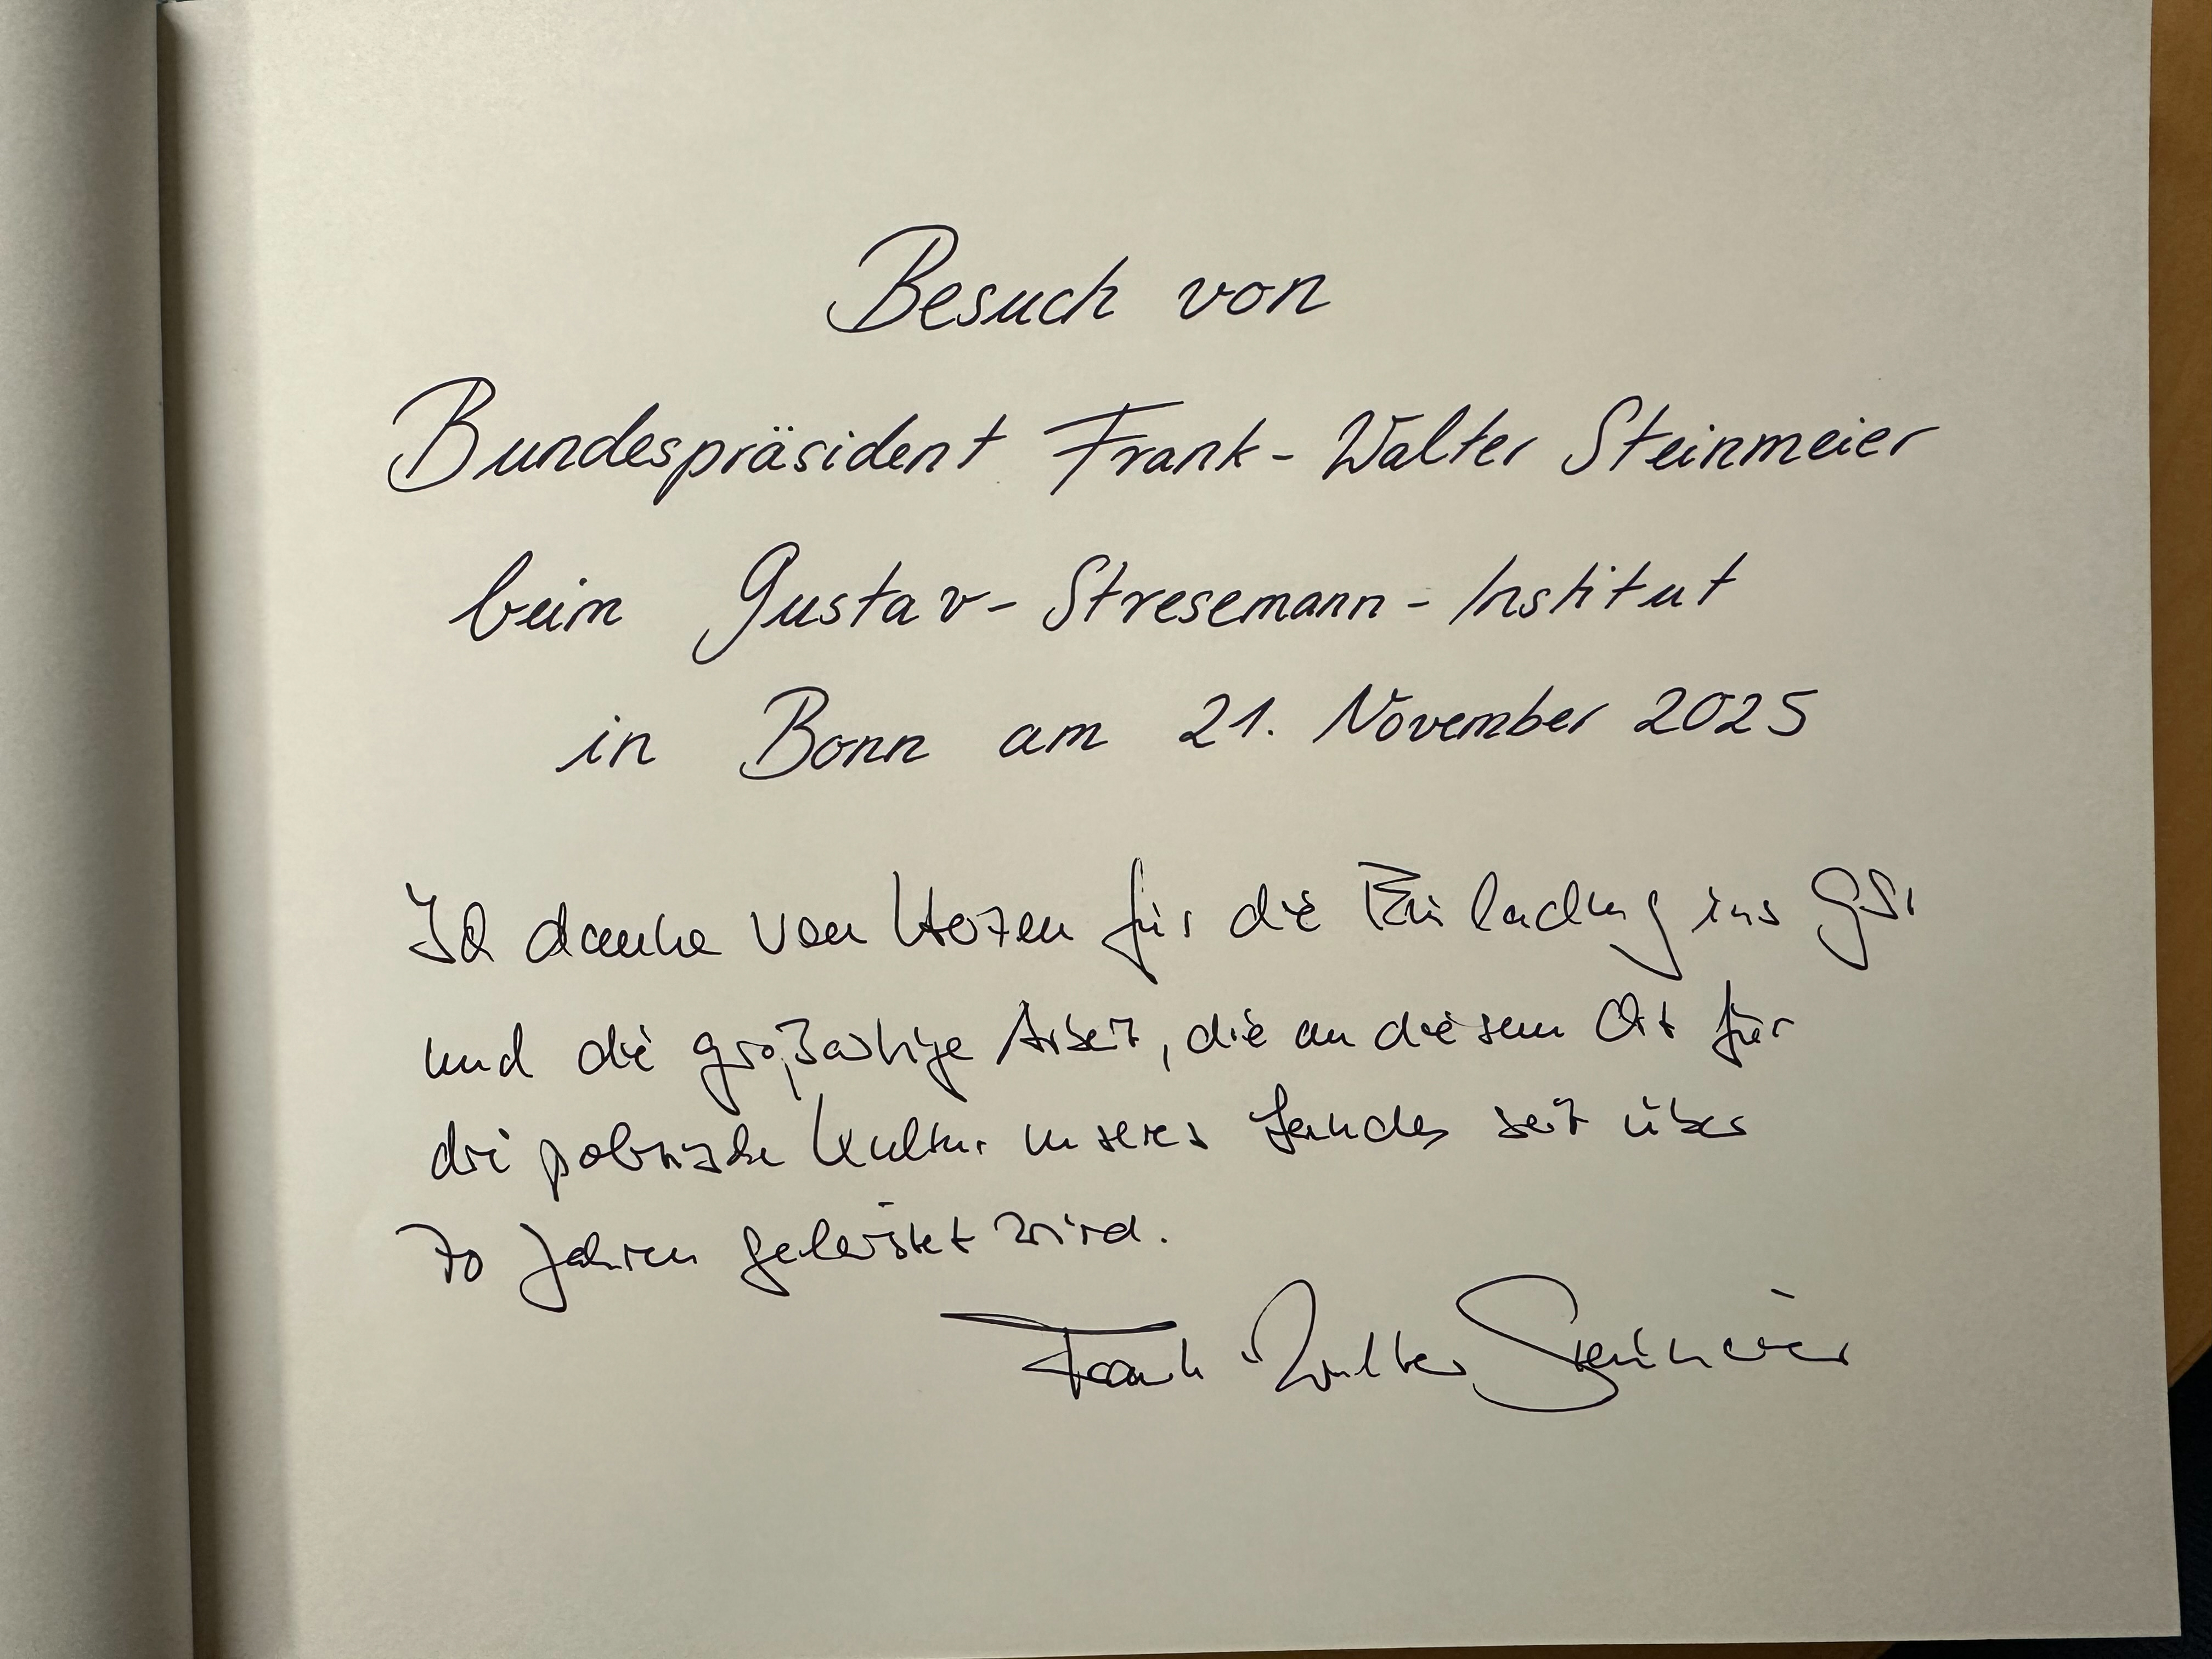 Besuch von
Bundespräsident Frank-Walter Steinmeier
beim Gustav-Stresemann-Institut
in Bonn am 21. November 2025
Ich danke von Herzen für die Einladung ins GSI
und die großartige Arbeit, die an diesem Ort für
die politische Kultur unseres Landes seit über
70 Jahren geleistet wird.
Frank-Walter Steinmeier